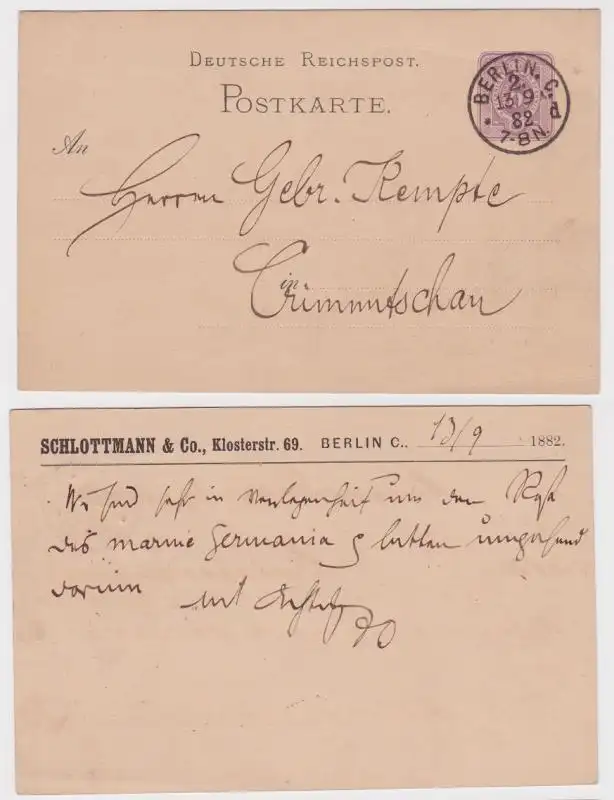 DEUTSCHE REICHSPOST.
POSTKARTE.
BERLIN. C.
2. d
13 9
82
7-8 N.
An
Herren Gebr. Kempte
in
Crimmitschau
SCHLOTTMANN & Co., Klosterstr. 69. BERLIN C., 13/9 1882.
Wir sind sehr in Verlegenheit um den Rest
des marine Germania & bitten umgehend
darum
mit